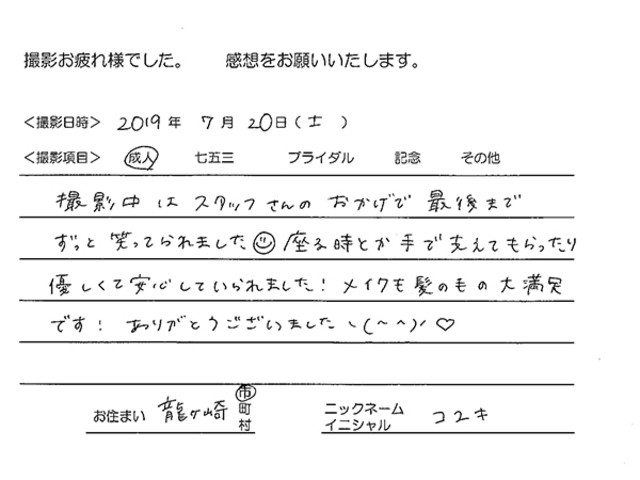 撮影お疲れ様でした。　感想をお願いいたします。
<撮影日時> 2019年 7月 20日(土)
<撮影項目> 成人 七五三 ブライダル 記念 その他
撮影中は スタッフさんの おかげで 最後まで
ずっと 笑ってられました 座る時とか 手で 支えてもらったり
優しくて 安心していられました! メイクも 髪のもの 大満足
です! ありがとうございました ヽ(^^)ノ ♡
お住まい 龍ヶ崎 市 町 村
ニックネーム イニシャル コユキ